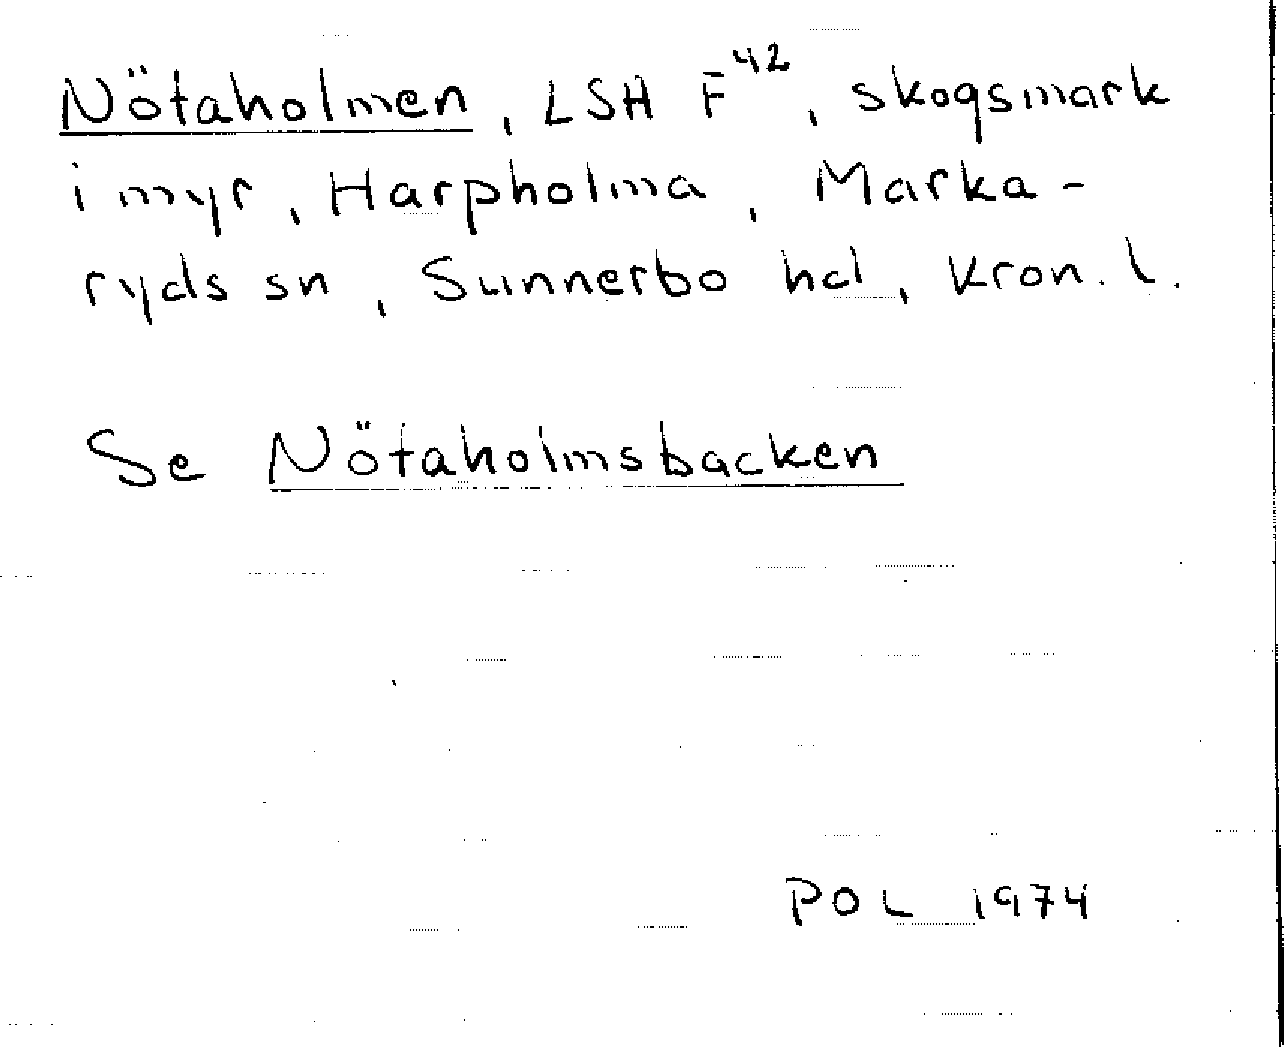 Nötaholmen, LSH F42, skogsmark
i myr, Harpholma, Marka-
ryds sn, Sunnerbo hd, Kron. l.
Se Nötaholmsbacken
POL 1974